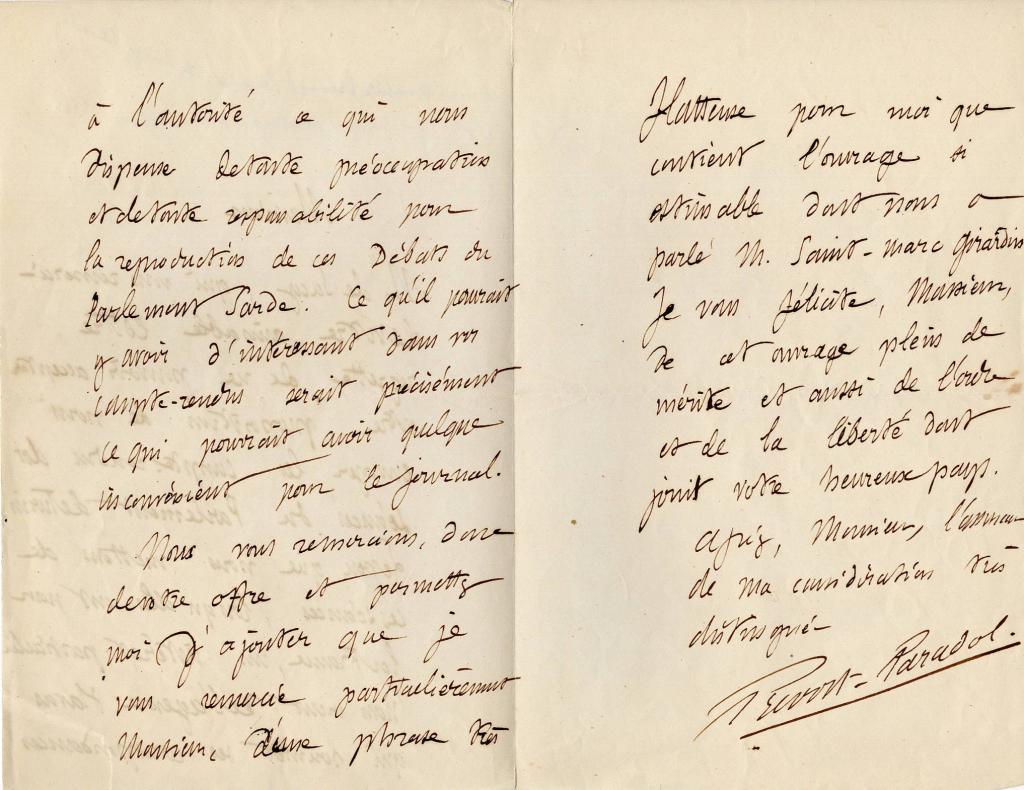 à l'autorité ce qui nous
dispense de toute préoccupation
et de toute responsabilité pour
la reproduction de ces Débats du
Parlement Sarde. Ce qu'il pourrait
y avoir d'intéressant dans vos
compte-rendus serait précisément
ce qui pourrait avoir quelque
inconvénient pour le journal.
Nous vous remercions, donc
de votre offre et permettez
moi d'ajouter que je
vous remercie particulièrement
Monsieur, d'une phrase très
flatteuse pour moi que
contient l'ouvrage si
estimable dont nous a
parlé M. Saint-Marc Girardin
Je vous félicite, Monsieur,
de cet ouvrage plein de
mérite et aussi de l'ordre
et de la liberté dont
jouit votre heureux pays.
Agréez, Monsieur, l'assurance
de ma considération très
distinguée
Prevost-Paradol.